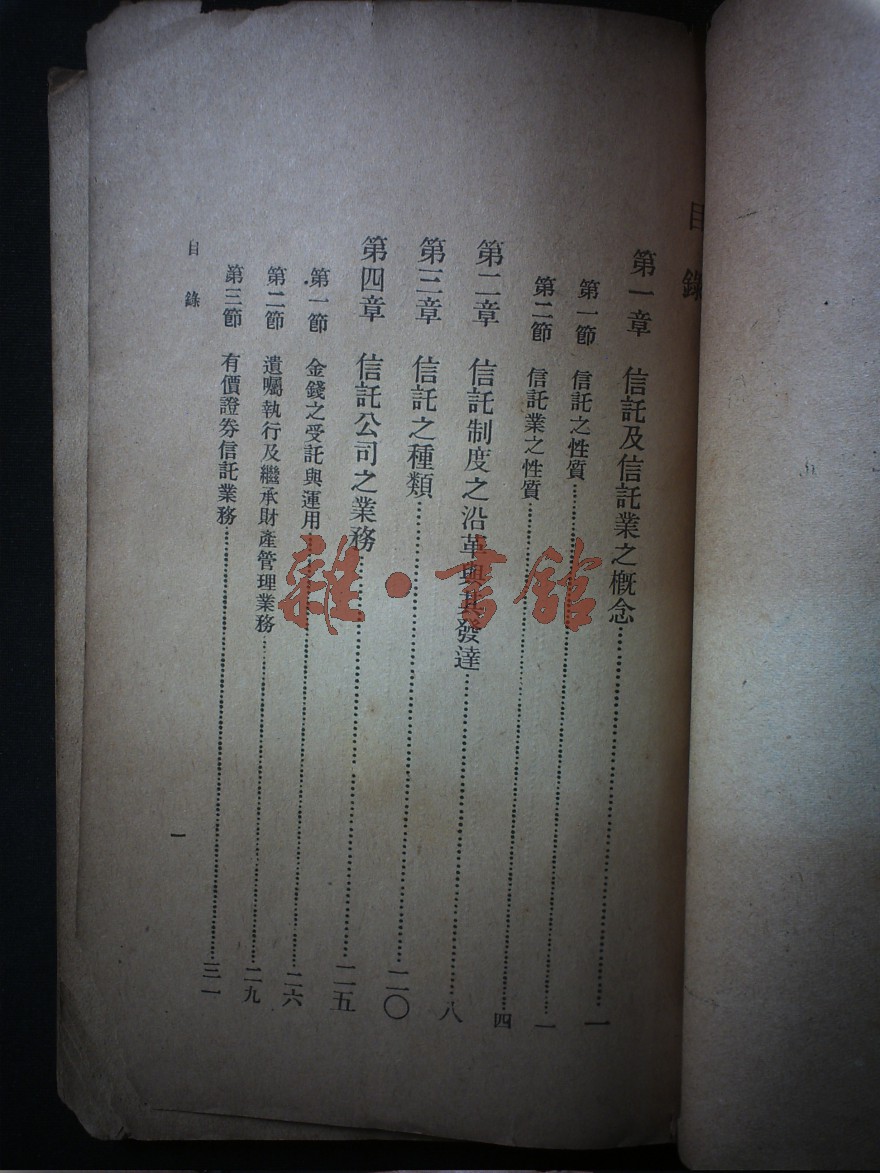 目錄
第一章 信託及信託業之概念……一
第一節 信託之性質……一
第二節 信託業之性質……四
第二章 信託制度之沿革與其發達……八
第三章 信託之種類……二〇
第四章 信託公司之業務……二五
第一節 金錢之受託與運用……二六
第二節 遺囑執行及繼承財產管理業務……二九
第三節 有價證券信託業務……三一
目錄
一
雜·書館